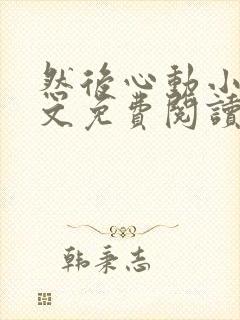 然後心動小
文免費閱讀
韩秉志